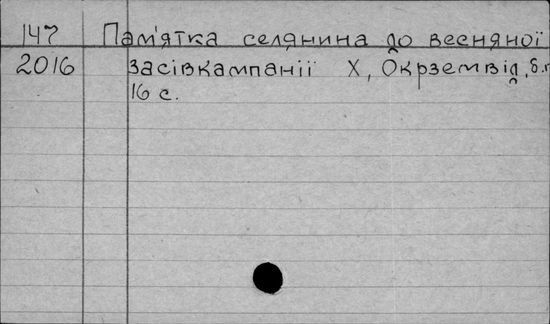 147 Пам'ятка селянина до весняної
2016 засівкампанії Х, Окрземвід, б.г.
16 с.